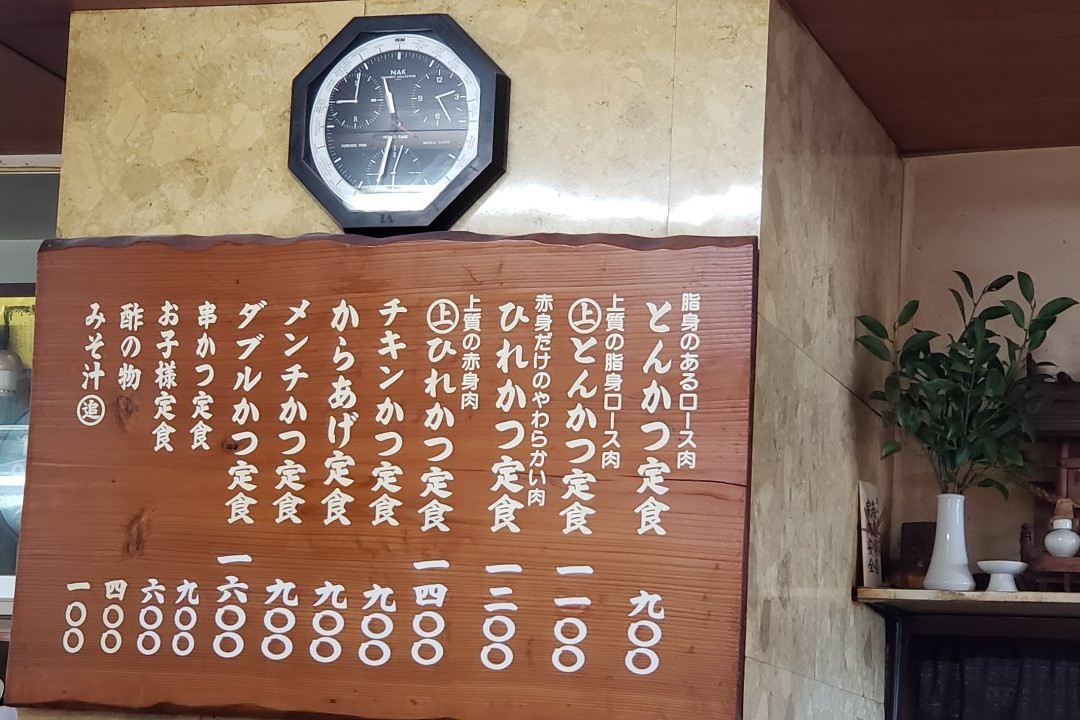 NAK
脂身のあるロース肉
とんかつ定食 九〇〇
上質の脂身ロース肉
㊤とんかつ定食 一一〇〇
赤身だけのやわらかい肉
ひれかつ定食 一二〇〇
上質の赤身肉
㊤ひれかつ定食 一四〇〇
チキンかつ定食 九〇〇
からあげ定食 九〇〇
メンチかつ定食 九〇〇
ダブルかつ定食 一六〇〇
串かつ定食 九〇〇
お子様定食 六〇〇
酢の物 四〇〇
みそ汁 追 一〇〇